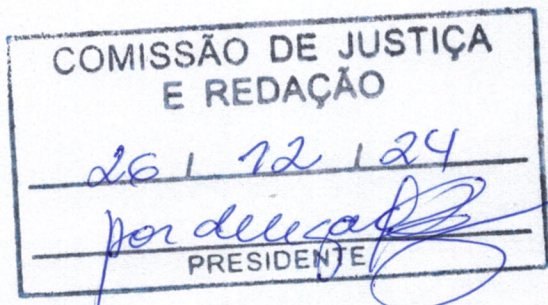 COMISSÃO DE JUSTIÇA
E REDAÇÃO
26 / 12 / 24
por delegação
PRESIDENTE